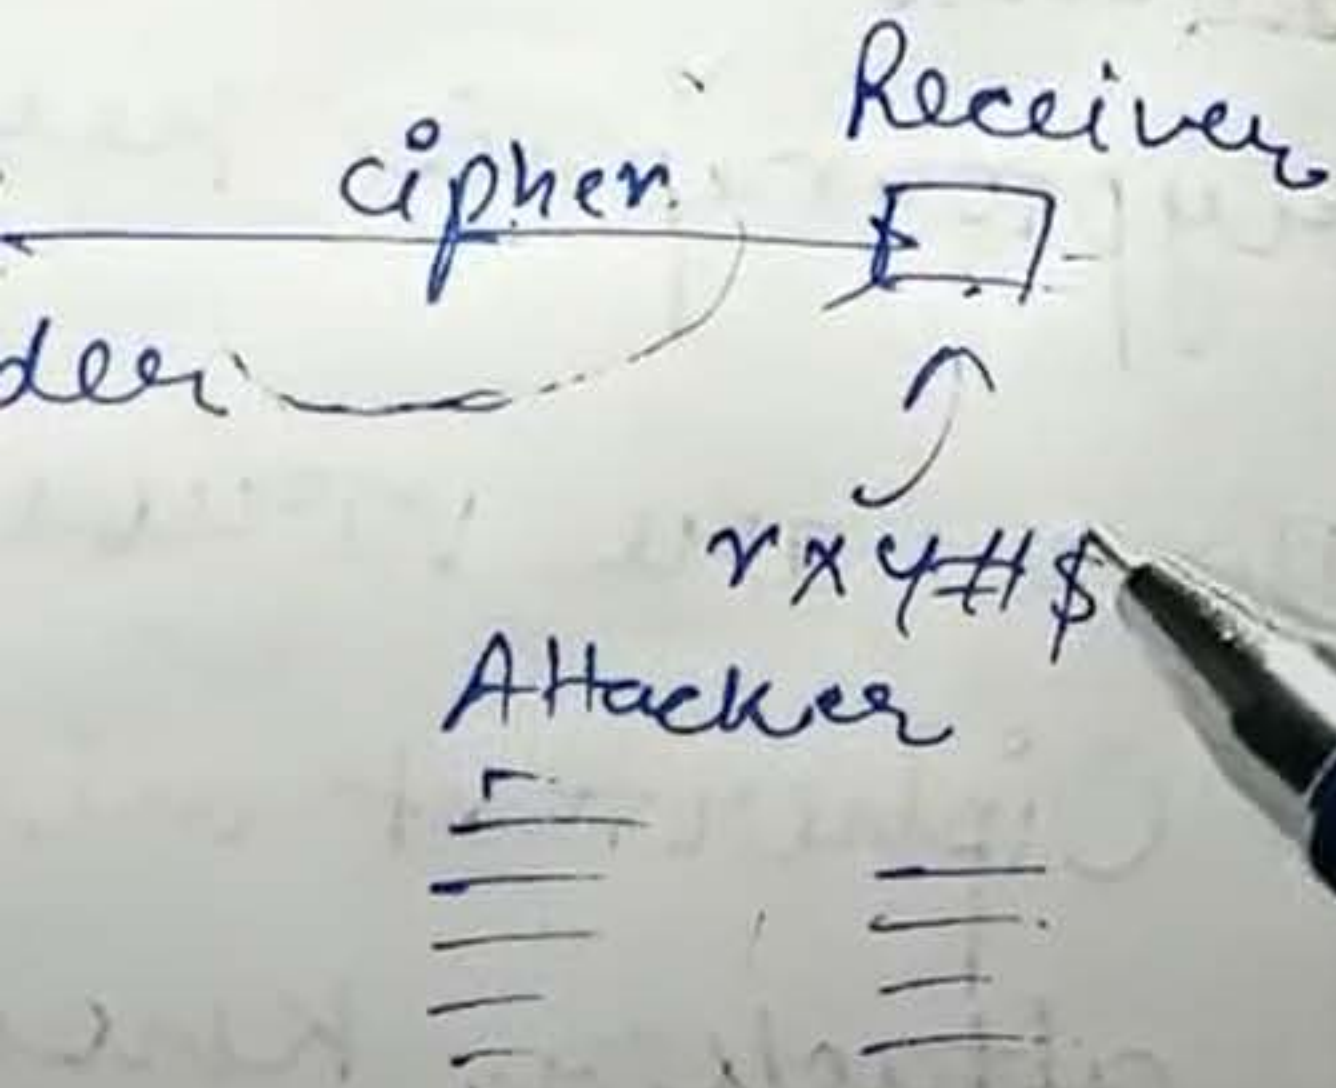 Receiver
cipher
der
rxy#$
Attacker